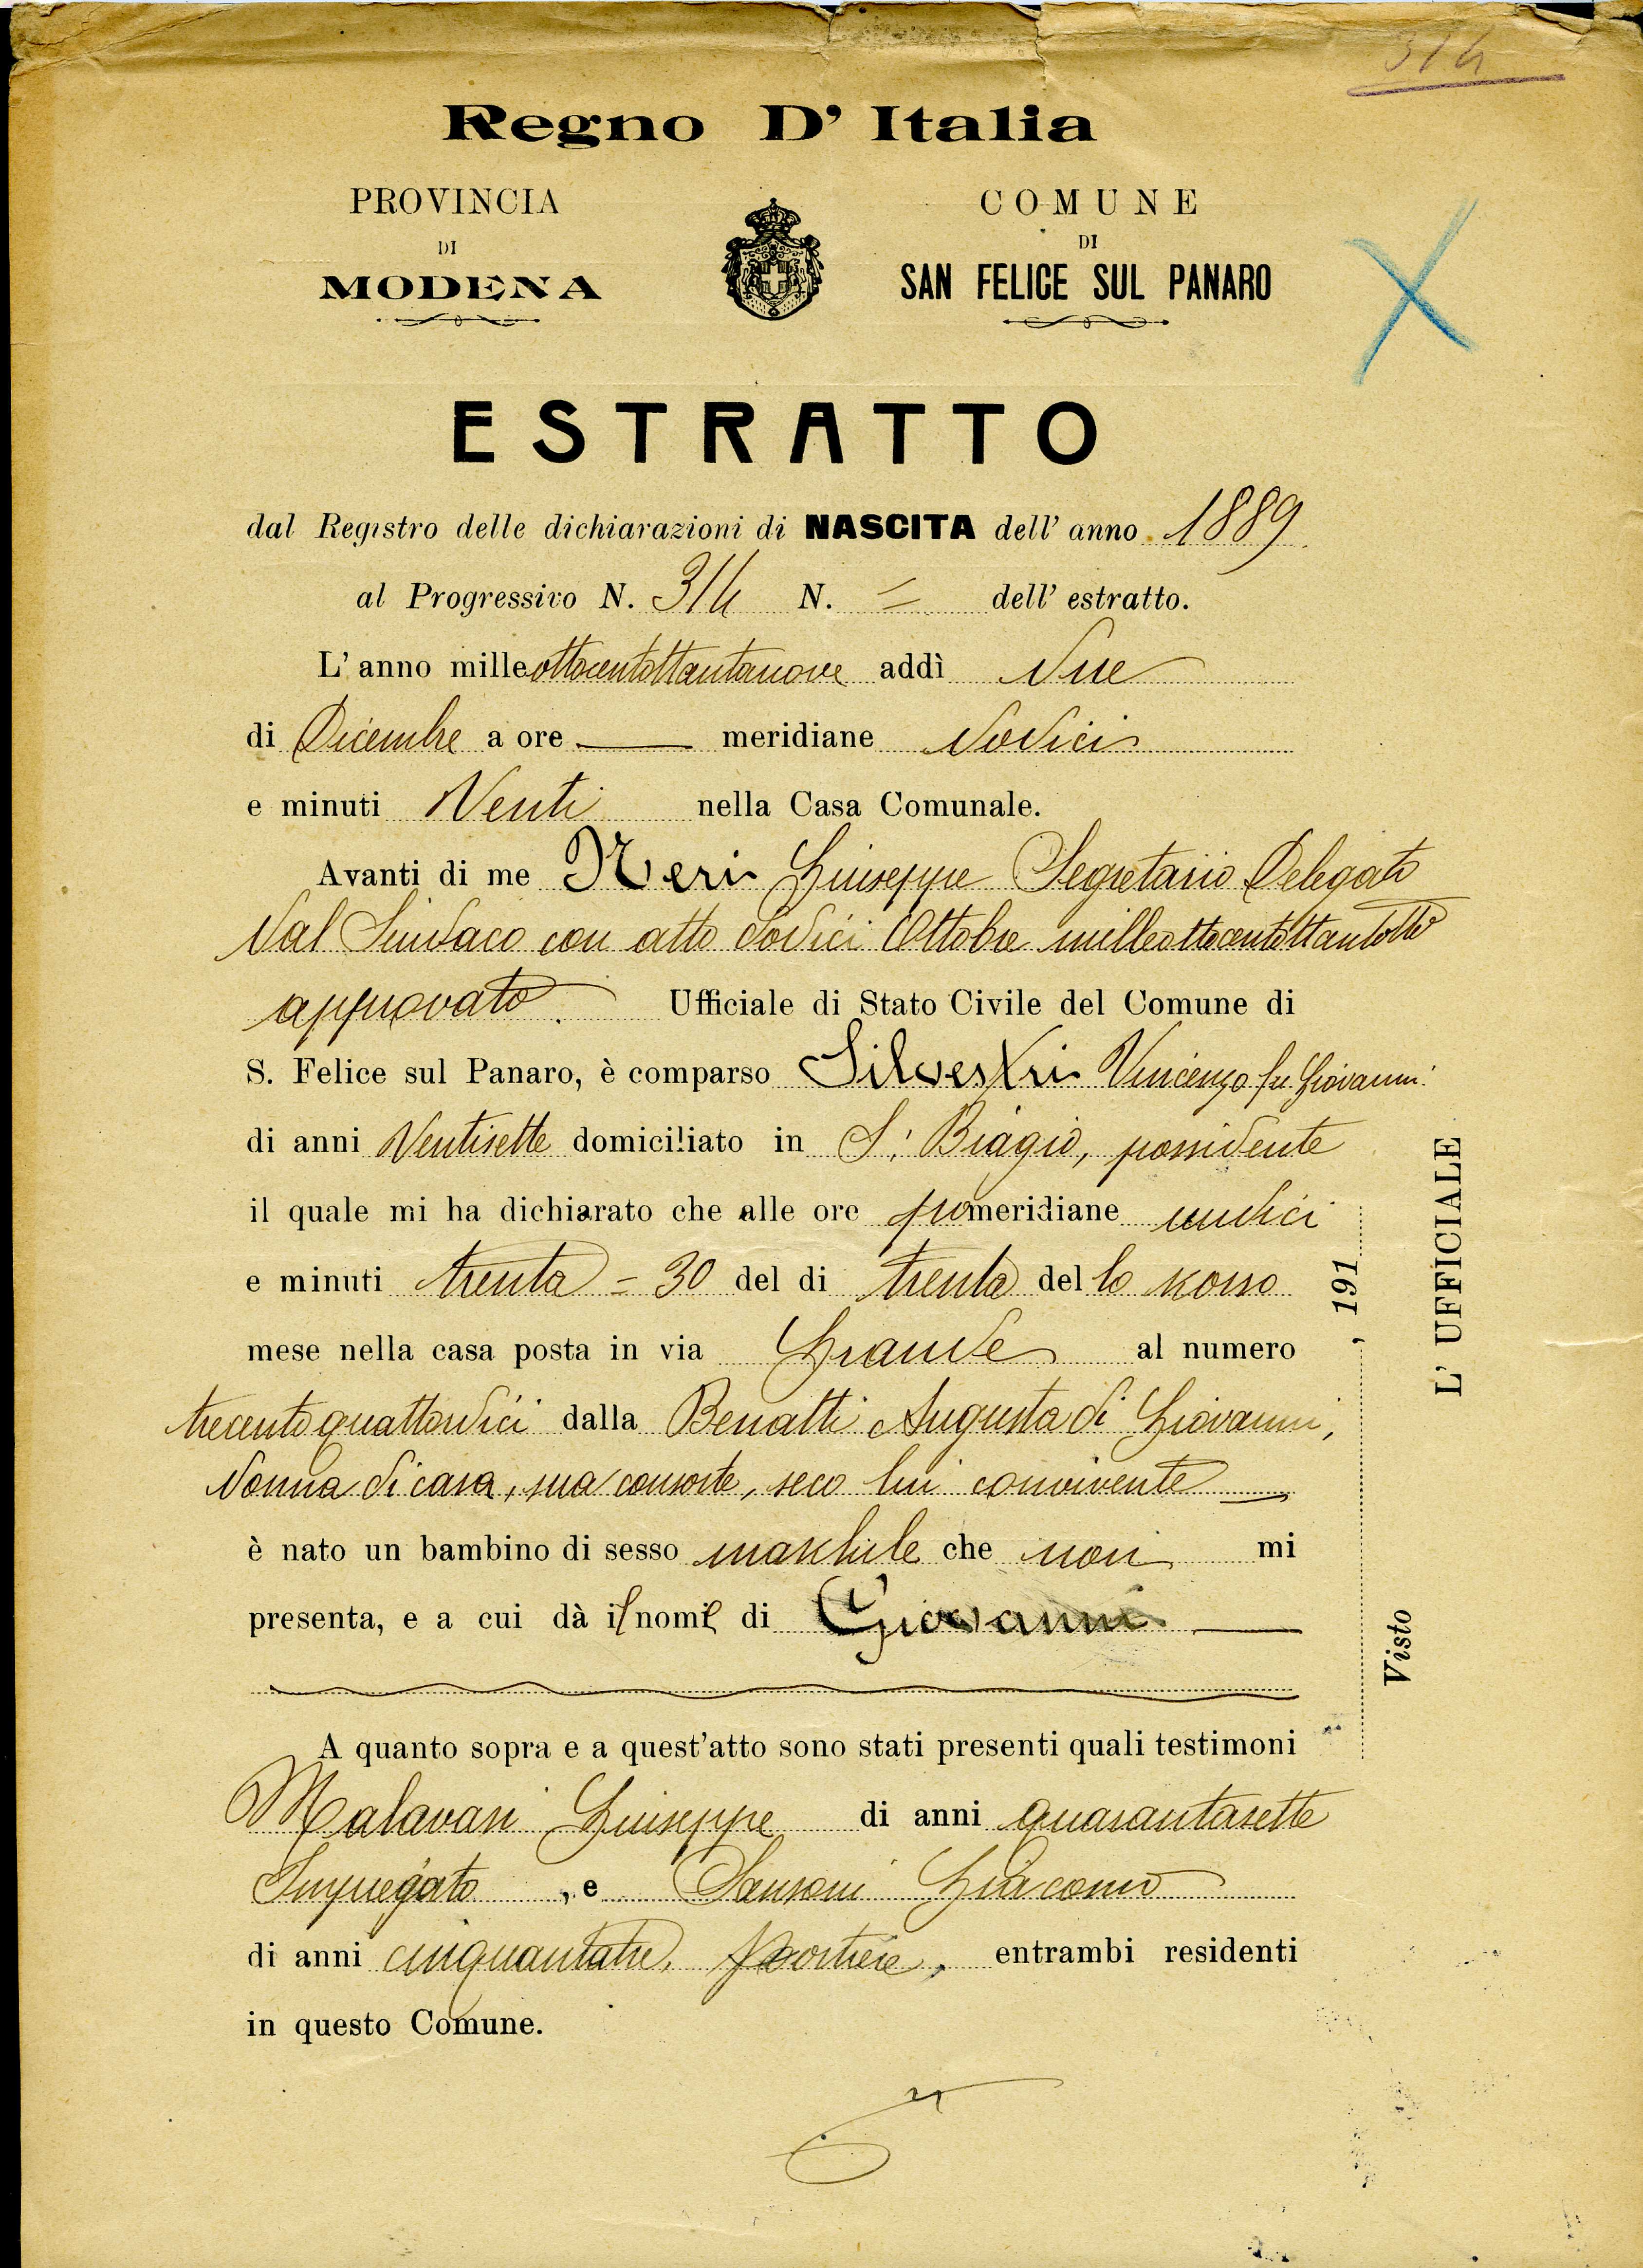 314
Regno D' Italia
PROVINCIA
DI
MODENA
COMUNE
DI
SAN FELICE SUL PANARO
ESTRATTO
dal Registro delle dichiarazioni di NASCITA dell' anno 1889
al Progressivo N. 314 N. = dell' estratto.
L' anno mille ottocentottantanove addì due
di Dicembre a ore — meridiane dodici
e minuti Venti nella Casa Comunale.
Avanti di me Neri Giuseppe Segretario Delegato
dal Sindaco con atto dodici Ottobre milleottocentottantotto
approvato. Ufficiale di Stato Civile del Comune di
S. Felice sul Panaro, è comparso Silvestri Vincenzo fu Giovanni
di anni Ventisette domiciliato in S. Biagio, possidente
il quale mi ha dichiarato che alle ore pomeridiane undici
e minuti trenta = 30 del di trenta del lo scorso
mese nella casa posta in via Grande al numero
trecentoquattordici dalla Benatti Augusta di Giovanni,
donna di casa, sua consorte, seco lui convivente
è nato un bambino di sesso maschile che non mi
presenta, e a cui dà il nome di Giovanni
A quanto sopra e a quest'atto sono stati presenti quali testimoni
Malavasi Giuseppe di anni quarantasette
Impiegato, e Sansoni Giacomo
di anni cinquantatre, portiere, entrambi residenti
in questo Comune.
, 191
Visto
L' UFFICIALE